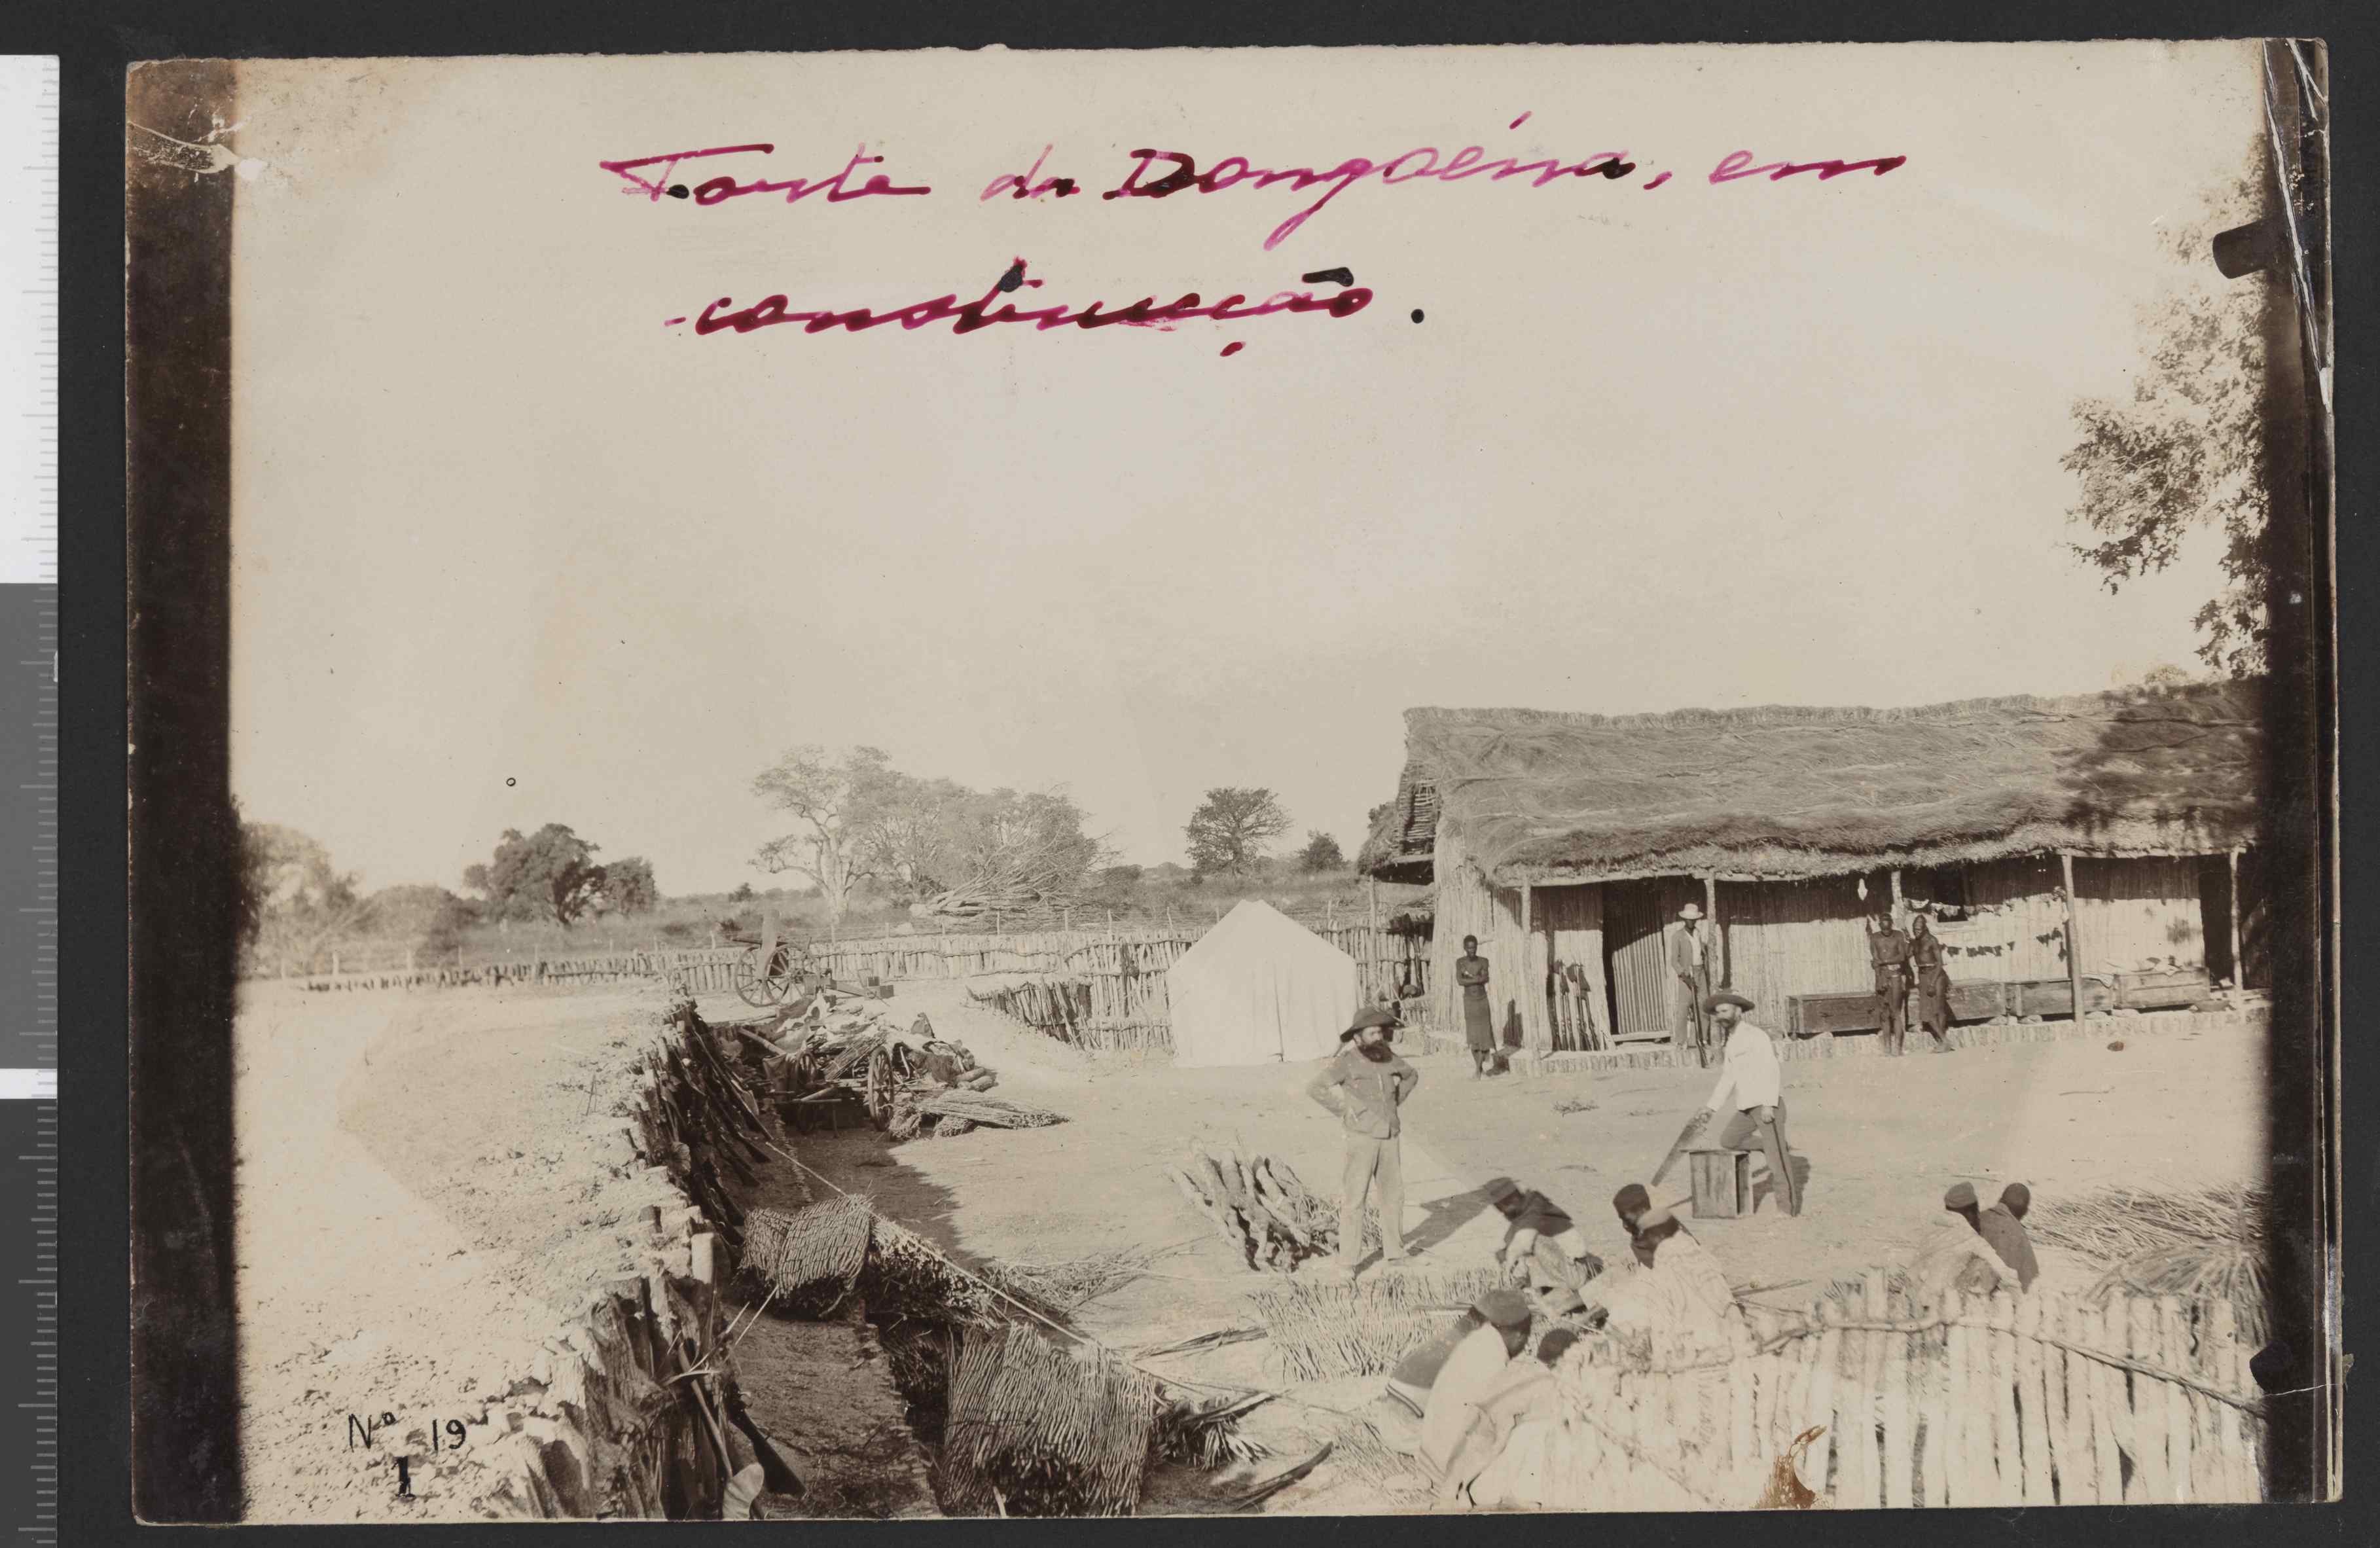 Forte da Dongoéna, em
construcção.
Nº 19
1